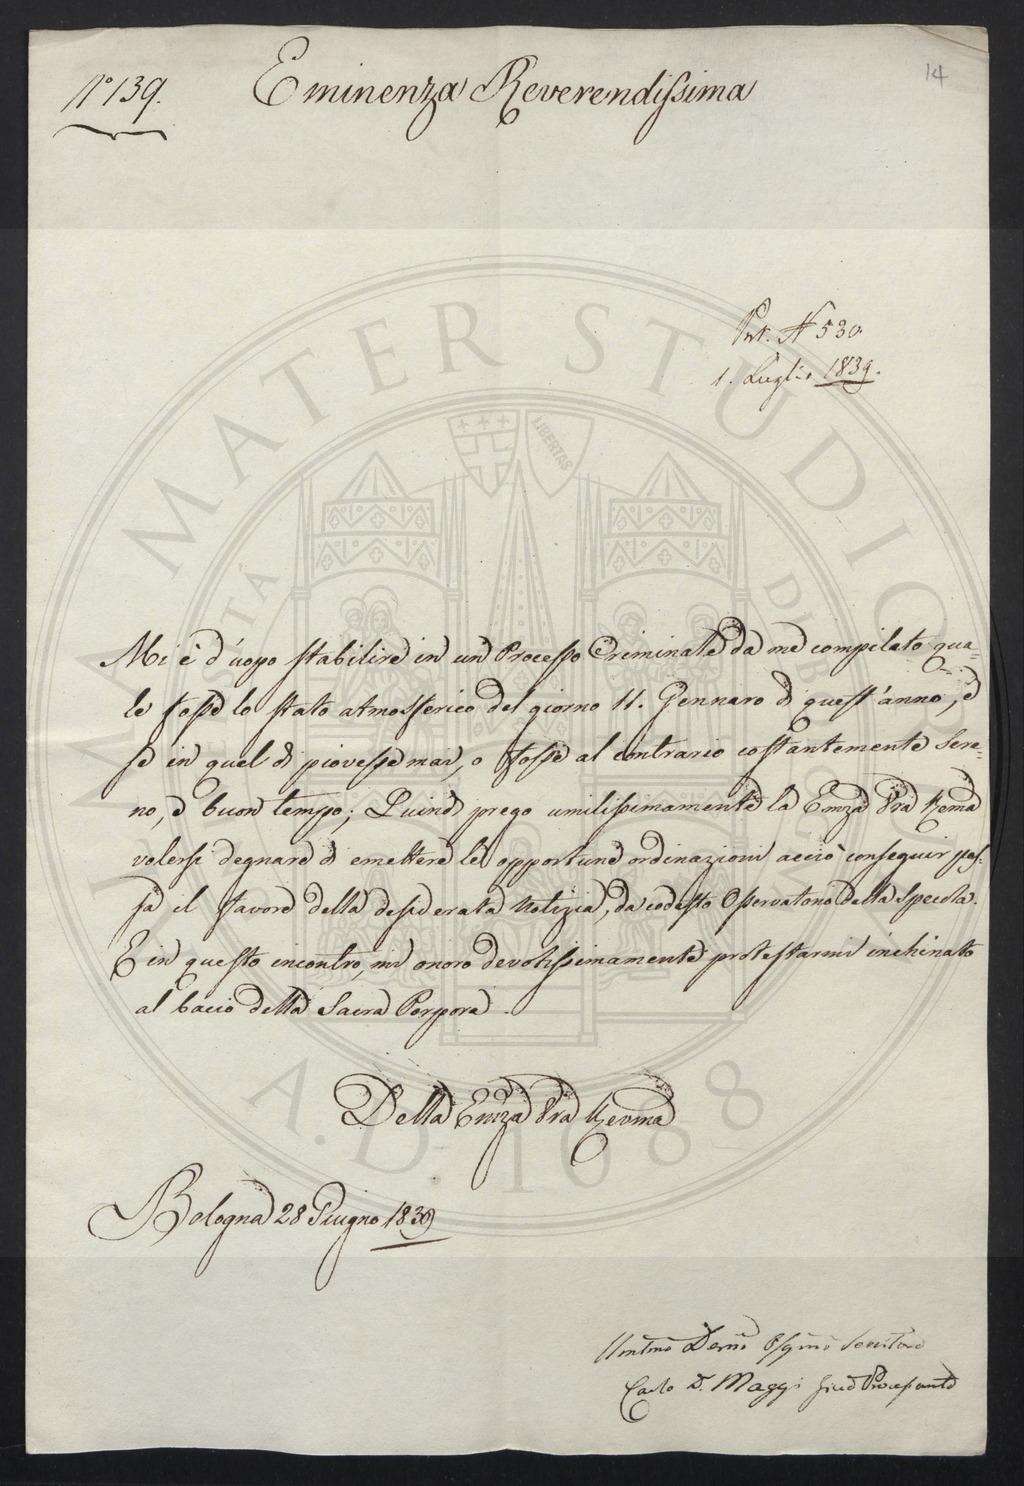 N° 139.
Eminenza Reverendissima
14
Prot. N 530
1. Luglio 1839.
Mi è d'uopo stabilire in un Processo Criminale da me compilato qua-
le fosse lo stato atmosferico del giorno 11. Gennaro di quest'anno, e
se in quel dì piovesse mai, o fosse al contrario costantemente sere-
no, e buon tempo; Quindi prego umilissimamente la Emza Vra Rema
volersi degnare di emettere le opportune ordinazioni acciò conseguir pos-
sa il favore della desiderata Notizia, da codesto Osservatorio della Specola.
E in questo incontro, mi onoro devotissimamente protestarmi inchinato
al bacio della Sacra Porpora.
Della Emza Vra Revma
Bologna 28 Giugno 1839
Umilmo Devmo Ossmo Servitore
Carlo D. Maggi Giud Processante
ALMA MATER STUDIORUM
A.D. 1088
LIBERTAS